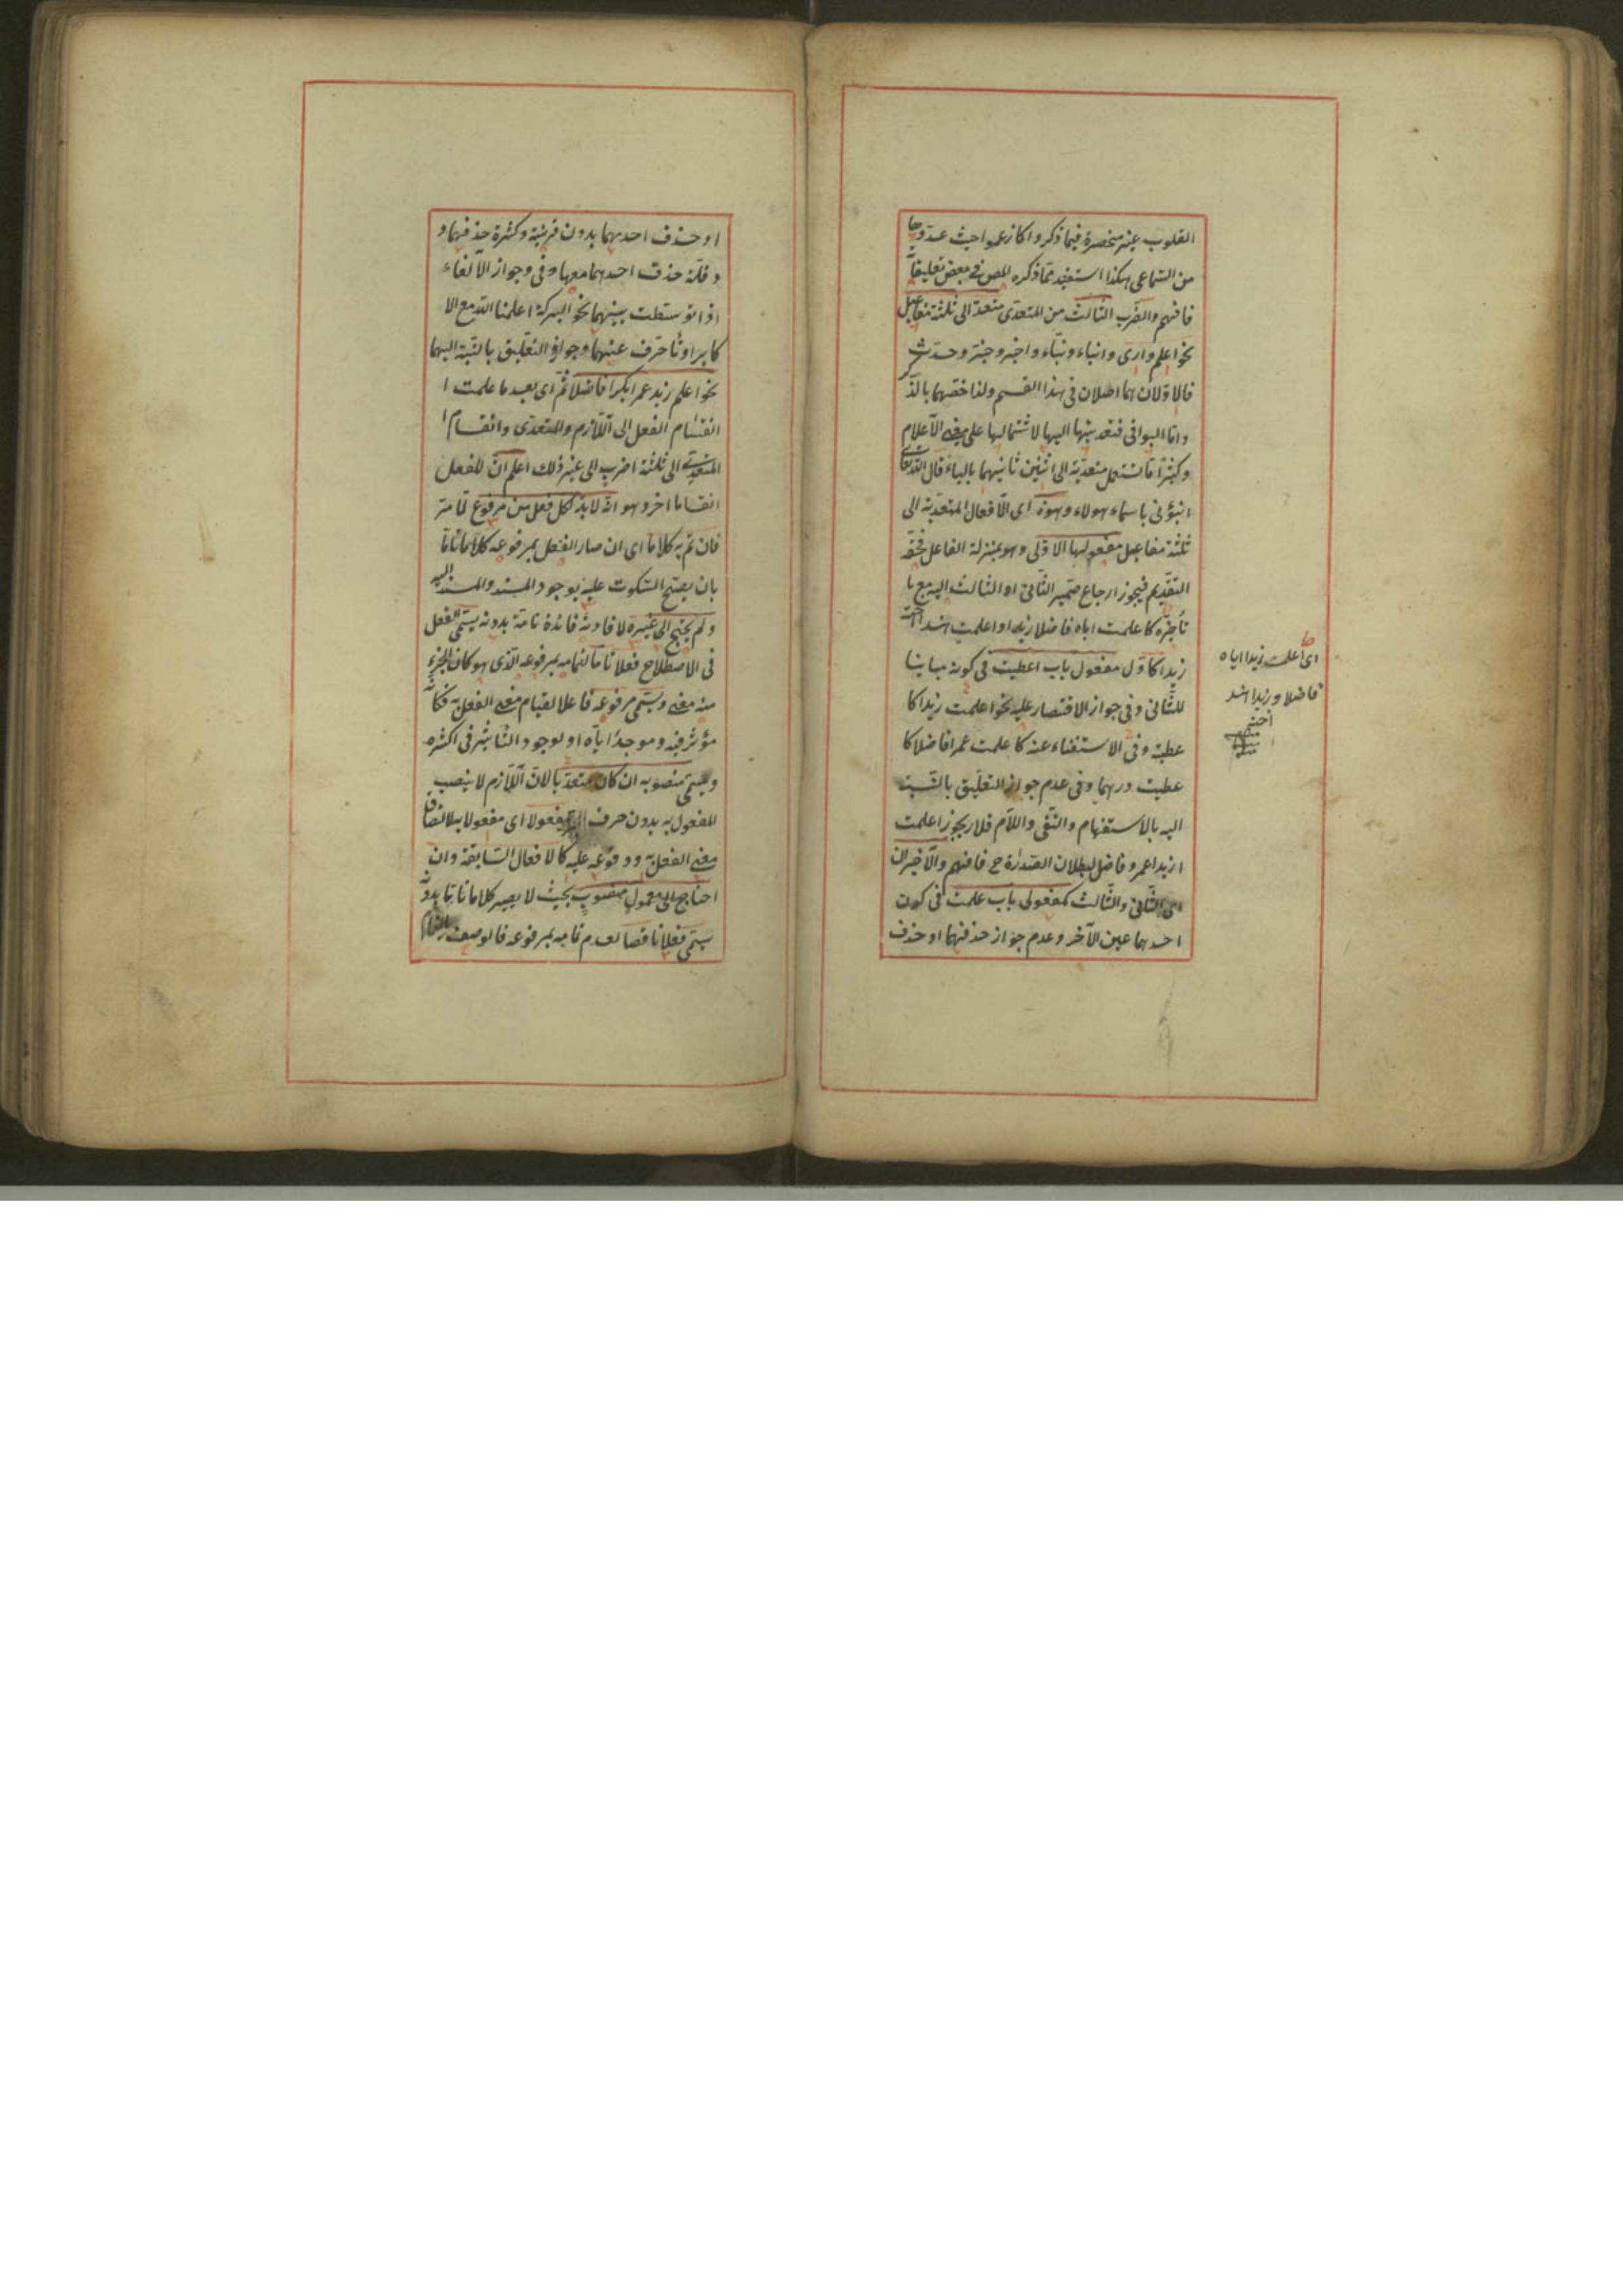 القلوب غير منحصرة فيما ذكروا كما زعموا حيث عدوها
من السماعى هكذا استفيد مما ذكره المص فى بعض تعليقاته
فافهم والضرب الثالث من المتعدى متعد الى ثلثة مفاعيل
نحو اعلم وارى وانباء ونباء واخبر وخبر وحدث
فالاولان هما اصلان فى هذا القسم ولذا خصهما بالذكر
واما البواقى فتعديتها اليها لاشتمالها على معنى الاعلام
وكثيرا ما تستعمل متعدية الى اثنين ثانيهما بالباء قال الله تعالى
انبؤنى باسماء هولاء وهذه اى الافعال المتعدية الى
ثلثة مفاعيل مفعولها الاول وهو بمنزلة الفاعل فحقه
التقديم فيجوز ارجاع ضمير الثانى او الثالث اليه مع
تأخره كاعلمت اباه فاضلا زيدا او اعلمت هندا اخته
زيدا كاول مفعول باب اعطيت فى كونه مباينا
للثانى وفى جواز الاقتصار عليه نحو اعلمت زيدا كا
عطيته وفى الاستغناء عنه كاعلمت عمرا فاضلا كا
عطيت درهما وفى عدم جواز التعليق بالنسبة
اليه بالاستفهام والنفى واللام فلا يجوز اعلمت
ازيدا عمرو فاضل لبطلان الصدارة ح فافهم والاخيران
اى الثانى والثالث كمفعولى باب علمت فى كون
احدهما عين الآخر وعدم جواز حذفهما او حذف
اى اعلمت زيدا اياه
فاضلا وزيدا هند
اخته
منه
او حذف احديهما بدون قرينة وكثرة حذفهما و
وقلة حذف احدهما معها وفى جواز الالغاء
اذا توسطت بينهما نحو البركة اعلمنا الله مع الا
كابر او تأخرت عنهما وجواز التعليق بالنسبة اليهما
نحو اعلم زيد عمرا بكرا فاضلا ثم اى بعد ما علمت ا
انقسام الفعل الى اللازم والمتعدى وانقسام
المتعدى الى ثلثة اضرب الى غير ذلك اعلم ان للفعل
انقساما اخر وهو انه لابد لكل فعل من مرفوع لما مر
فان تم به كلاما اى ان صار الفعل بمرفوعه كلاما تاما
بان يصح السكوت عليه بوجود المسند والمسند اليه
ولم يحتج الى غيره لافادته فائدة تامة بدونه يسمى الفعل
فى الاصطلاح فعلا تاما لتمامه بمرفوعه الذى هو كان الجزء
منه معنى ويسمى مرفوعه فاعلا لقيام معنى الفعل به فكانه
مؤثر فيه وموجدا اياه او لوجود التأثير فى اكثره
ويسمى منصوبه ان كان متعديا لان اللازم لا ينصب
المفعول به بدون حرف مفعولا اى مفعولا به لاتصاق
معنى الفعل به ووقوعه عليه كالافعال السابقة وان
احتاج الى معمول منصوب بحيث لا يصير كلاما تاما بدونه
يسمى فعلا ناقصا لعدم تمامه بمرفوعه